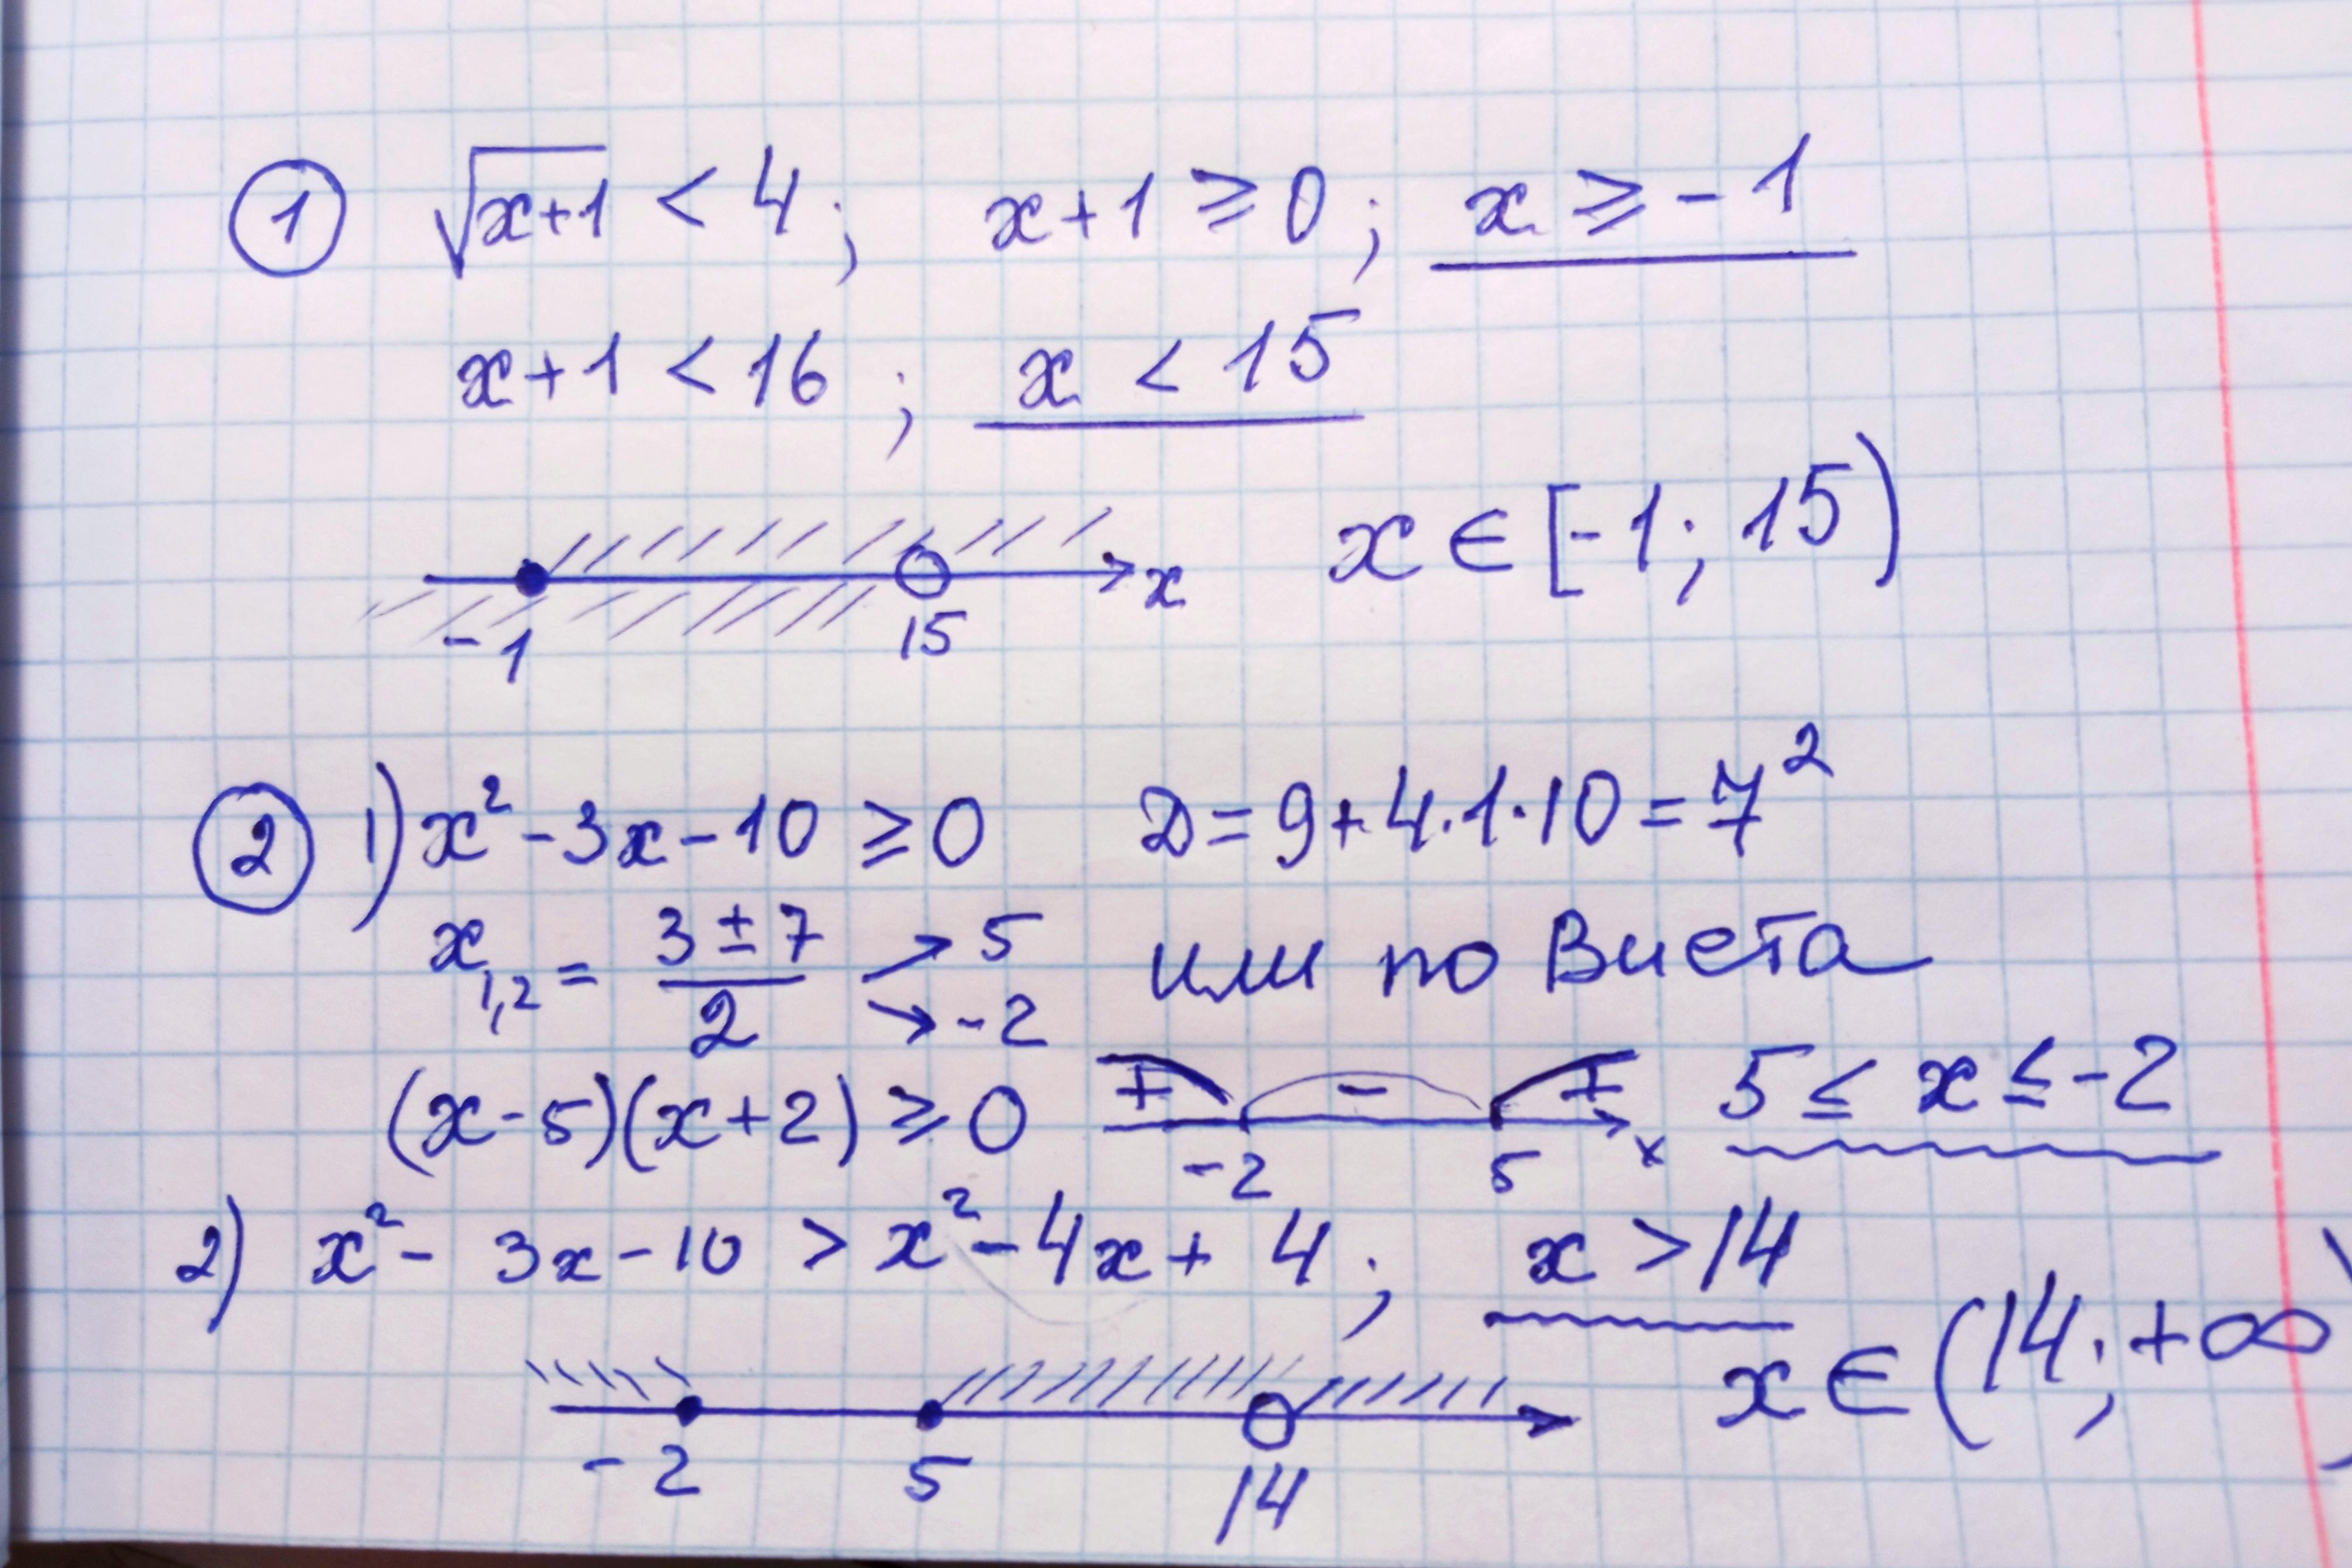 ① √x+1 < 4; x+1 ⩾ 0; x ⩾ -1
x+1 < 16 ; x < 15
-1 15 x x ∈ [-1; 15)
② 1) x² - 3x - 10 ⩾ 0 D = 9+4·1·10 = 7²
x₁,₂ = (3 ± 7)/2 → 5 → -2 или по Виета
(x-5)(x+2) ⩾ 0 + - + -2 5 x 5 ≤ x ≤ -2
2) x² - 3x - 10 > x² - 4x + 4; x > 14
-2 5 14 x ∈ (14; +∞)